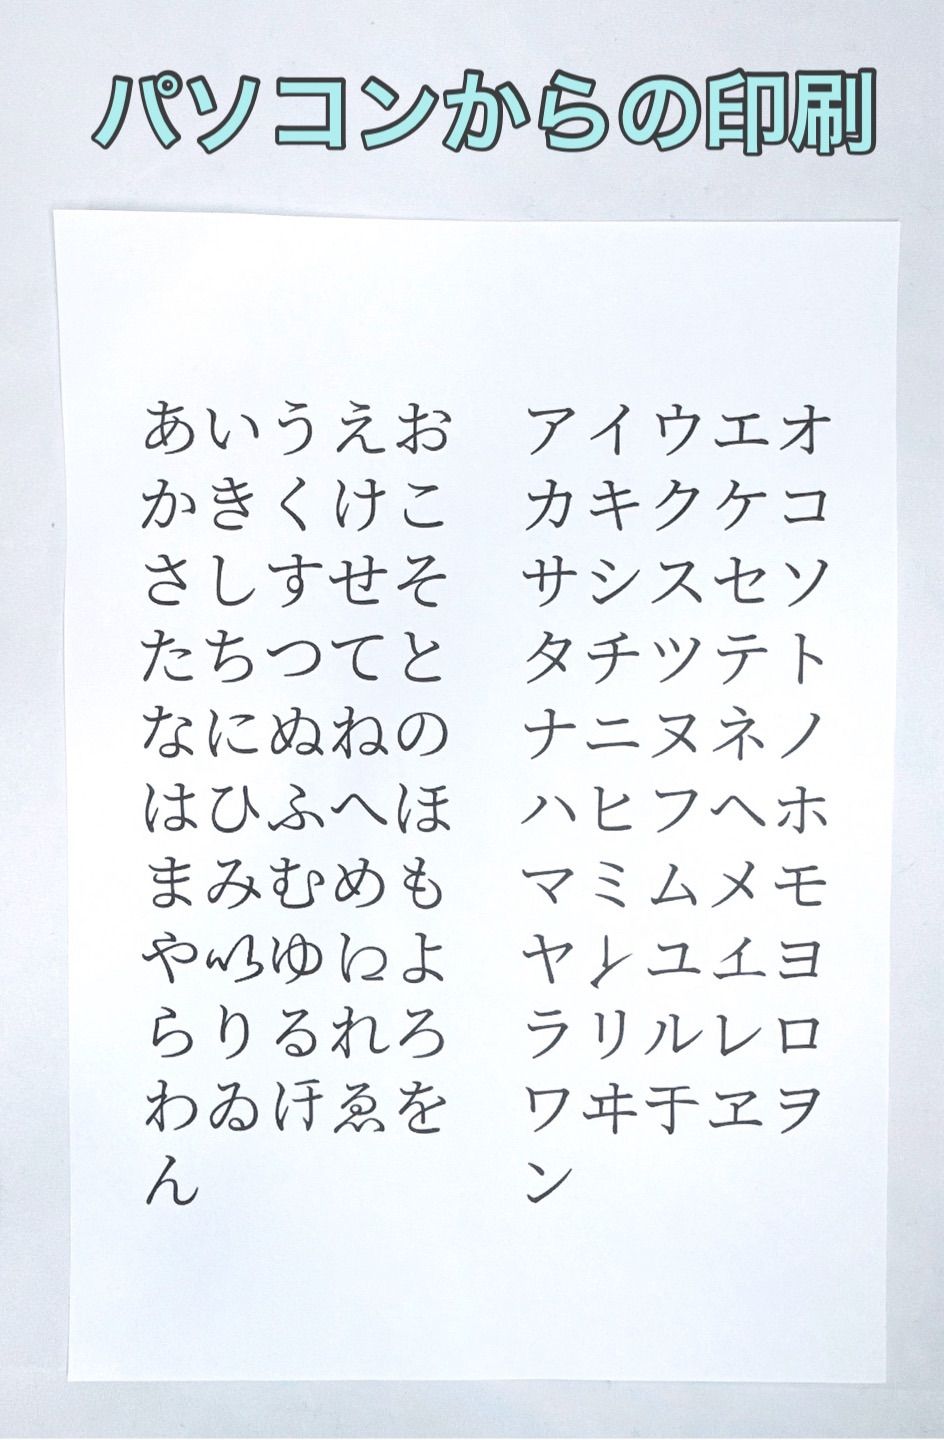 パソコンからの印刷
あいうえお
かきくけこ
さしすせそ
たちつてと
なにぬねの
はひふへほ
まみむめも
や𛀆ゆ𛀁よ
らりるれろ
わゐ𛄟ゑを
ん
アイウエオ
カキクケコ
サシスセソ
タチツテト
ナニヌネノ
ハヒフヘホ
マミムメモ
ヤ𛄠ユ𛄡ヨ
ラリルレロ
ワヰ𛄢ヱヲ
ン